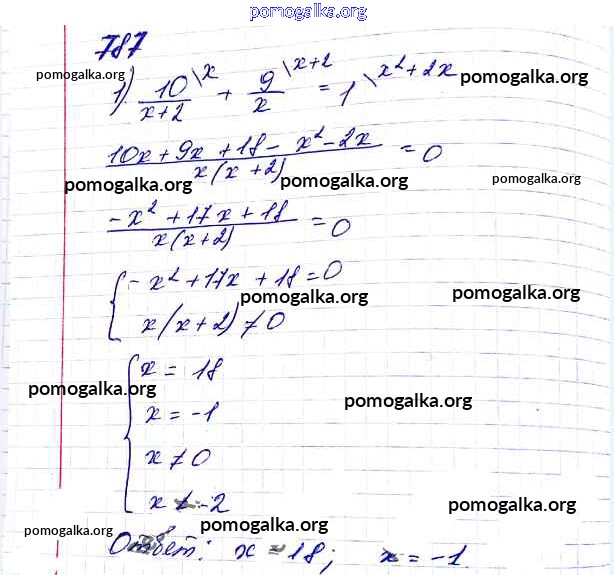 pomogalka.org
787
pomogalka.org
1) 10/(x+2) \x + 9/x \x+2 = 1 \x²+2x
pomogalka.org
(10x + 9x + 18 - x² - 2x)/(x(x+2)) = 0
pomogalka.org pomogalka.org pomogalka.org
(-x² + 17x + 18)/(x(x+2)) = 0
{ -x² + 17x + 18 = 0
pomogalka.org pomogalka.org
x(x+2) ≠ 0
{ x = 18
pomogalka.org pomogalka.org
x = -1
x ≠ 0
x ≠ -2
pomogalka.org
pomogalka.org pomogalka.org
Ответ: x = 18; x = -1.